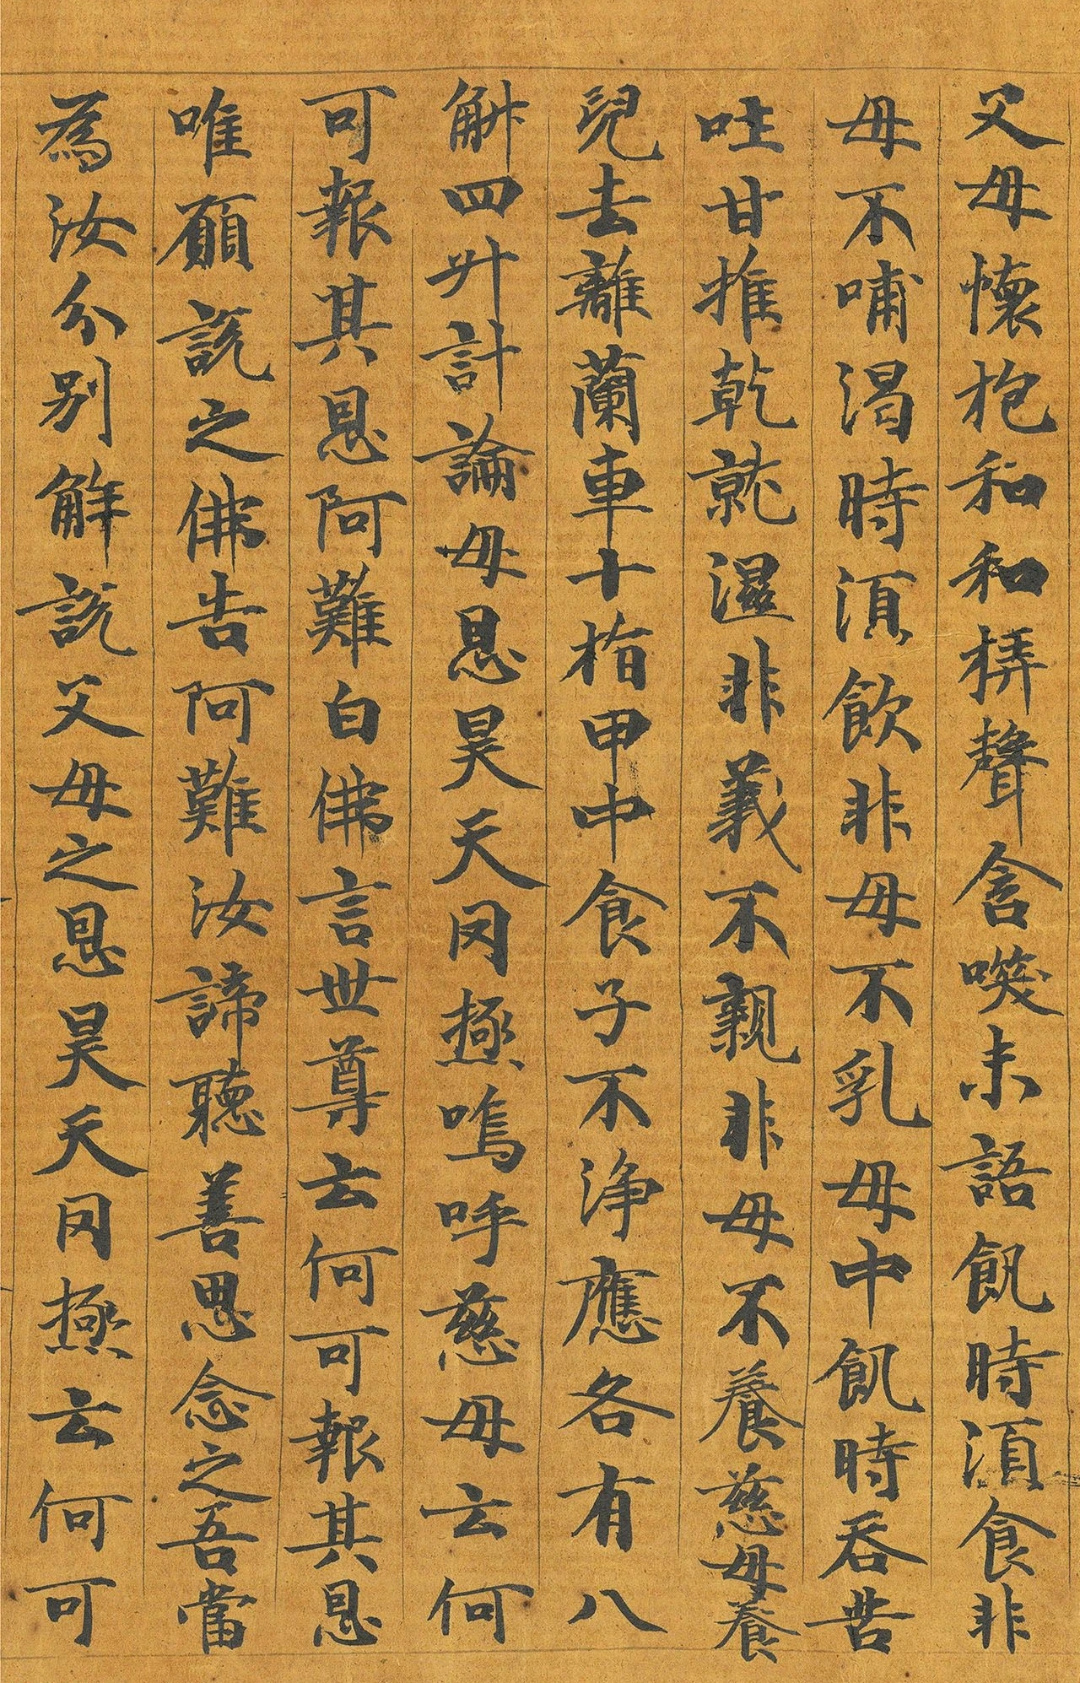 父母懷抱和和𢪛聲含唉未語飢時湏食非
母不哺渴時湏飲非母不乳母中飢時吞苦
吐甘推乾就濕非義不親非母不養慈母養
兒去離蘭車十指甲中食子不淨應各有八
斛四升計論母恩昊天罔極嗚呼慈母云何
可報其恩阿難白佛言世尊云何可報其恩
唯願說之佛告阿難汝諦聽善思念之吾當
為汝分別解說父母之恩昊天罔極云何可